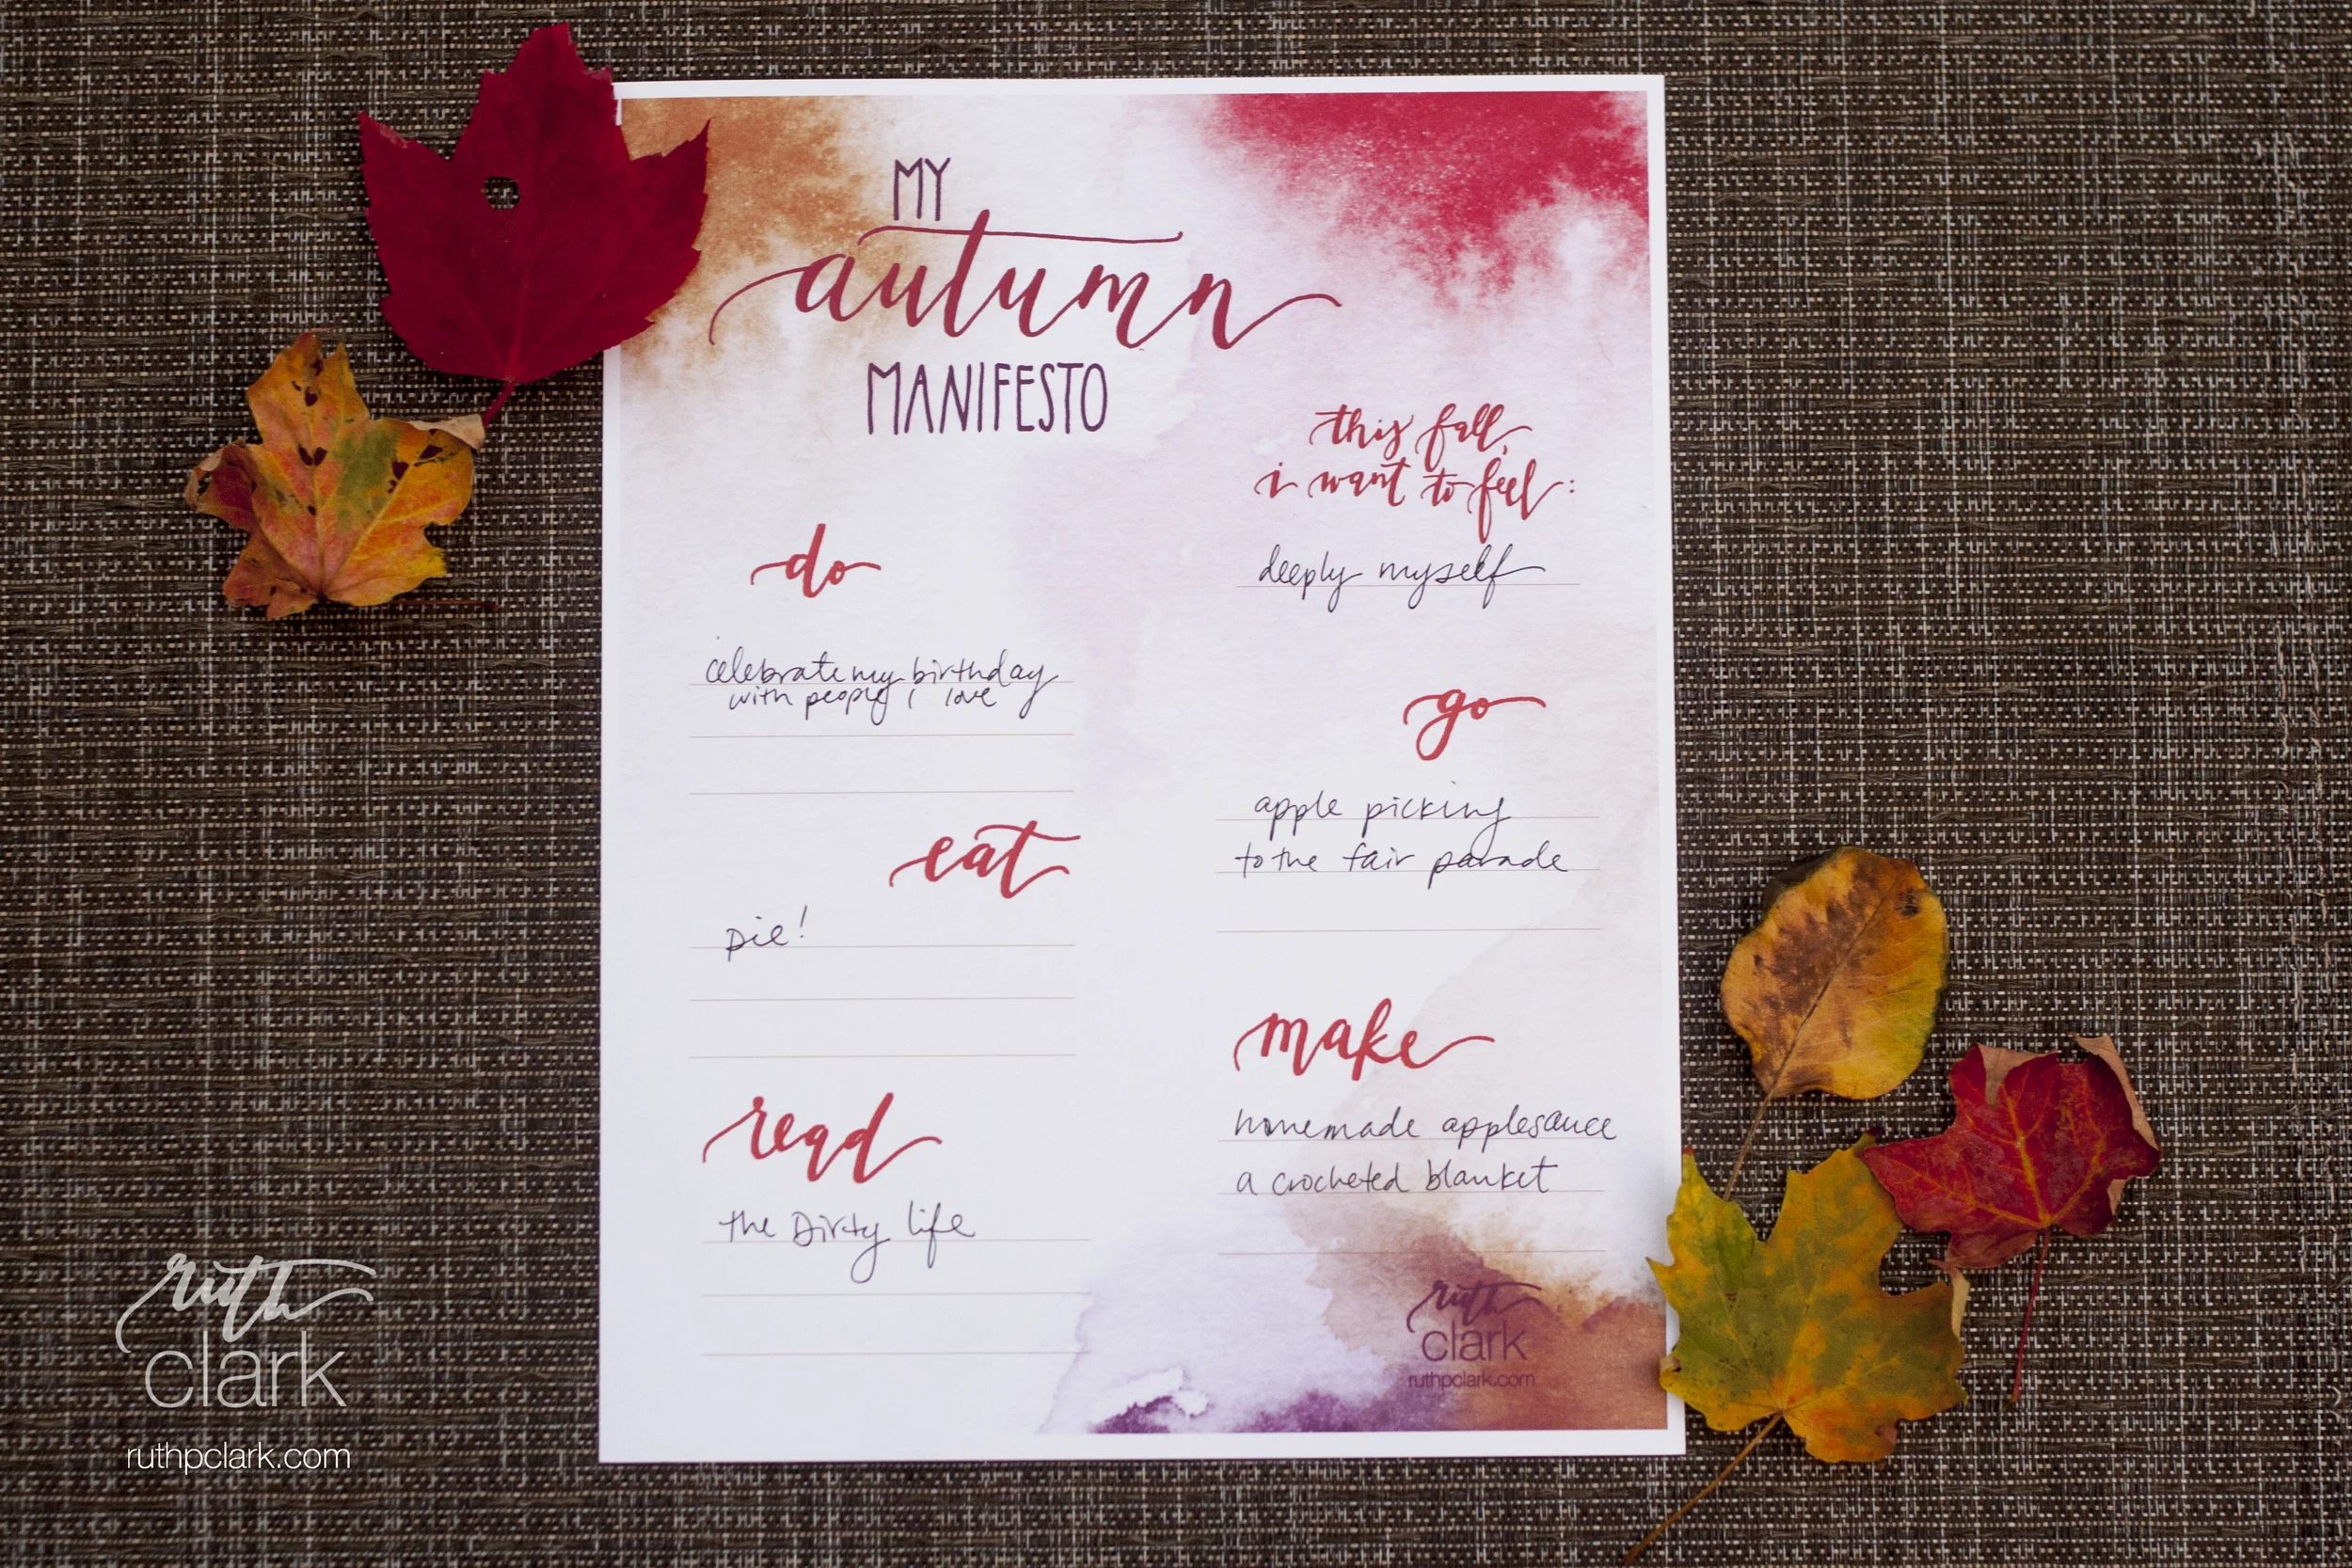 MY
autumn
MANIFESTO
do
celebrate my birthday
with people i love
eat
pie!
read
the Dirty life
this fall,
i want to feel:
deeply myself
go
apple picking
to the fair parade
make
homemade applesauce
a crocheted blanket
ruth
clark
ruthpclark.com
ruth
clark
ruthpclark.com